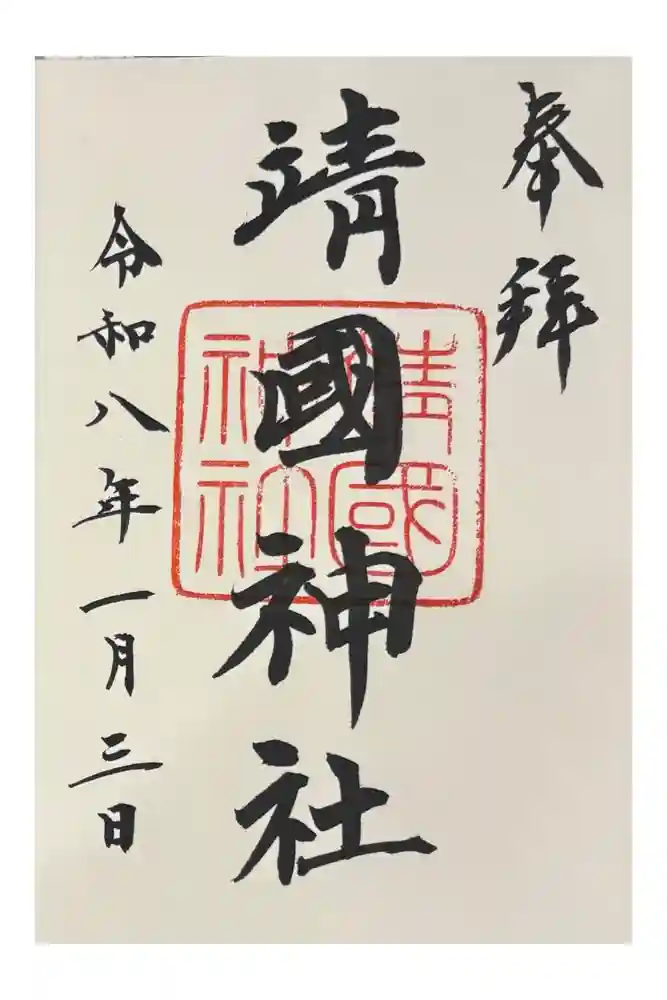 奉拝
靖國神社
靖國
神社
令和八年一月三日